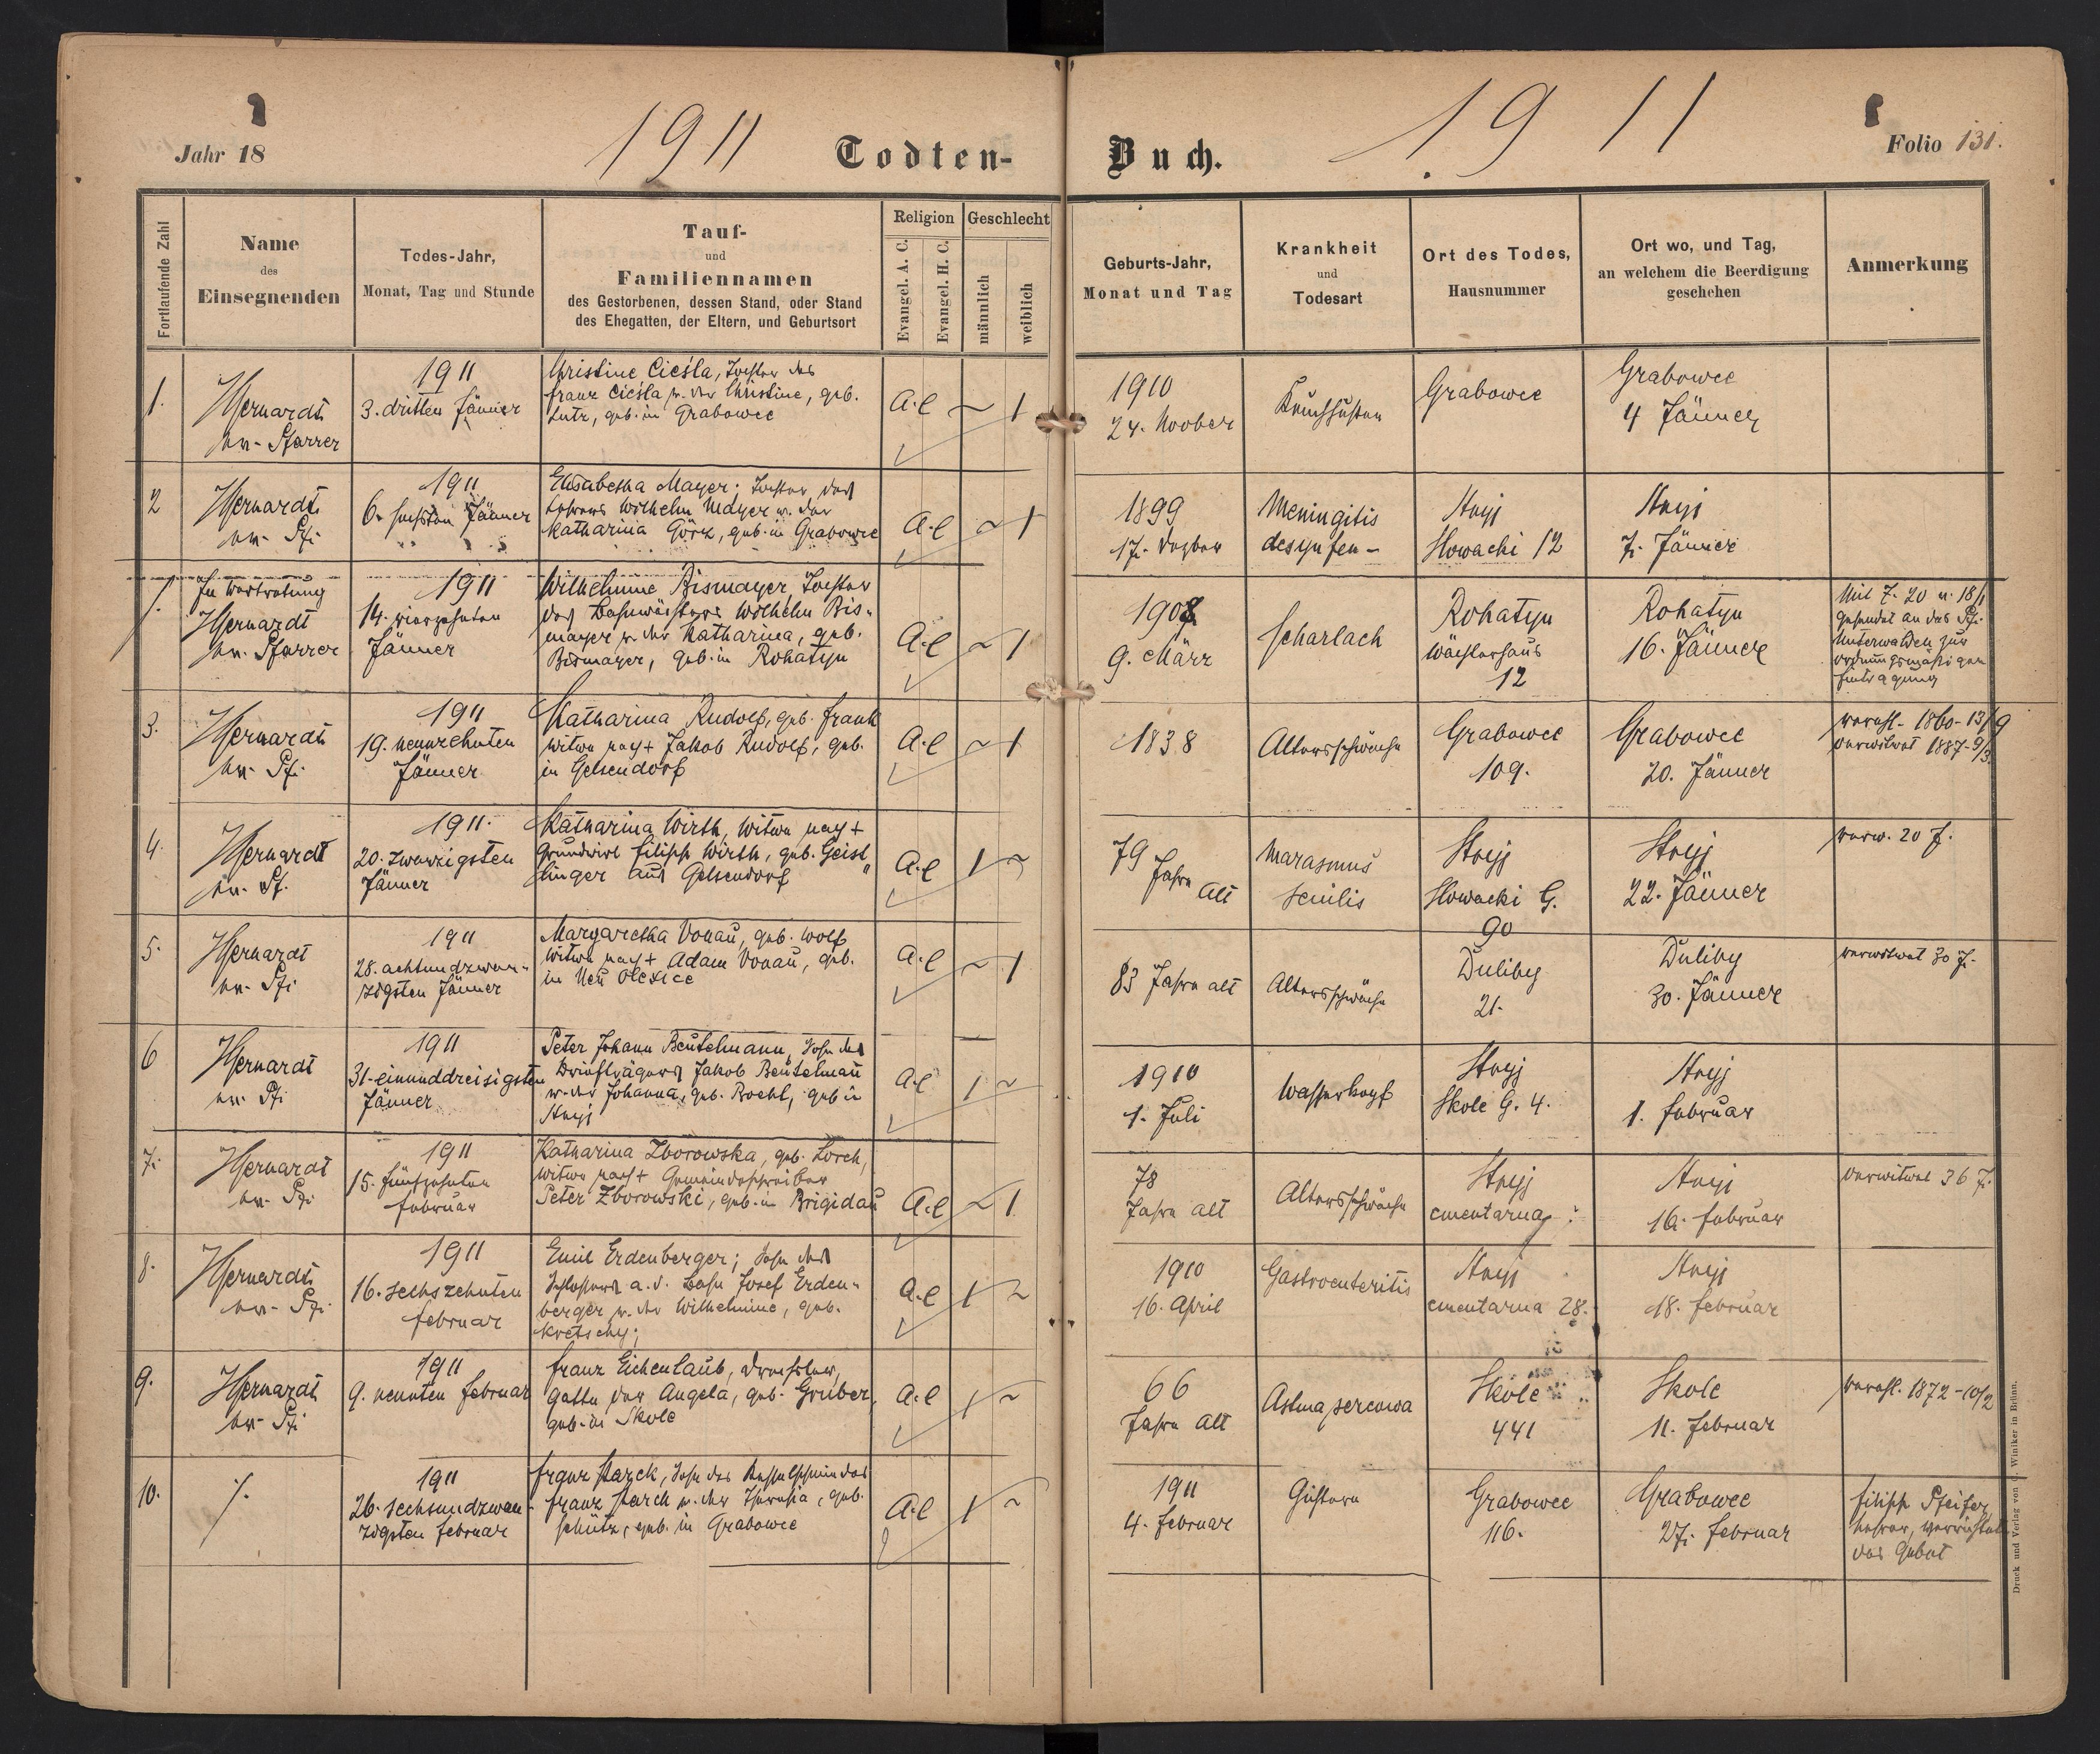 Jahr 18
1911
Todten-
Buch.
1911
Folio 131.
Fortlaufende Zahl
Name
des
Einsegnenden
Todes-Jahr,
Monat, Tag und Stunde
Tauf-
und
Familiennamen
des Gestorbenen, dessen Stand, oder Stand
des Ehegatten, der Eltern, und Geburtsort
Religion
Evangel. A. C.
Evangel. H. C.
Geschlecht
männlich
weiblich
Geburts-Jahr,
Monat und Tag
Krankheit
und
Todesart
Ort des Todes,
Hausnummer
Ort wo, und Tag,
an welchem die Beerdigung
geschehen
Anmerkung
1.
Pfarrer
1911
3. dritten Jänner
Christine Cieśla, Tochter des
Franz Cieśla u. der Christine, geb.
Lutz, geb. in Grabowce
A.C
~ 1
1910
24. Novber
Keuchhusten
Grabowce
Grabowce
4 Jänner
2
Pf.
1911
6. sechsten Jänner
Elisabetha Mayer; Tochter des
Lehrers Wilhelm Mayer u. der
Katharina Görz, geb. in Grabowce
A.C
~ 1
1899
17. Dezber
Meningitis
Stryj
Slowacki 12
Stryj
7. Jänner
/.
In Vertretung
Pfarrer
1911
14. vierzehnten
Jänner
Wilhelmine Bismayer, Tochter
des Bahnwächters Wilhelm Bis-
mayer u. der Katharina, geb.
Bismayer, geb. in Rohatyn
A.C
~ 1
1908
9. März
Scharlach
Rohatyn
Wächterhaus
12
Rohatyn
16. Jänner
Mit Z. 20 u. 18/1
gesendet an das Pf.
Unterwalden zur
ordnungsmäßigen
Eintragung
3.
Pf.
1911
19. neunzehnten
Jänner
Katharina Rudolf, geb. Frank
Witwe nach + Jakob Rudolf, geb.
in Gelsendorf
A.C
~ 1
1838
Altersschwäche
Grabowce
109.
Grabowce
20. Jänner
verehl. 1860-13/9
verwitwet 1887-9/3
4.
Pf.
1911
20. zwanzigsten
Jänner
Katharina Wirth, Witwe nach +
Grundwirt Filipp Wirth, geb. Geist-
linger aus Gelsendorf
A.C
1 ~
79
Jahre
alt
Marasmus
senilis
Stryj
Slowacki G.
90
Stryj
22. Jänner
verw. 20 J.
5.
Pf.
1911
28. achtundzwan-
zigsten Jänner
Margaretha Vonau, geb. Wolf
Witwe nach + Adam Vonau, geb.
in Neu Olexice
A.C
~ 1
83 Jahre alt
Altersschwäche
Duliby
21.
Duliby
30. Jänner
verwitwet 30 J.
6
Pf.
1911
31. einunddreisigsten
Jänner
Peter Johann Beutelmann, Sohn des
Briefträgers Jakob Beutelmann
u. der Johanna, geb. Bechl, geb in
Stryj
A.C
1 ~
1910
1. Juli
Wasserkopf
Stryj
Skole G. 4.
Stryj
1. Februar
7.
Pf.
1911
15. fünfzehnten
Februar
Katharina Zborowska, geb. Lorch,
Witwe nach + Gemeindeschreiber
Peter Zborowski, geb. in Brigidau
A.C
~ 1
78
Jahre alt
Altersschwäche
Stryj
cmentarna
Stryj
16. Februar
verwitwet 36 J.
8.
Pf.
1911
16. sechszehnten
Februar
Emil Erdenberger; Sohn des
Schlossers a. d. Bahn Josef Erden-
berger u. der Wilhelmine, geb.
Kretschy;
A.C
1 ~
1910
16. April
Gastroenteritis
Stryj
cmentarna 28.
Stryj
18. Februar
9.
Pf.
1911
9. neunten Februar
Franz Eichenlaub, Drechsler,
Gatte der Angela, geb. Gruber,
geb. in Skole
A.C
1 ~
66
Jahre alt
Skole
441
Skole
11. Februar
verehl. 1872-10/2
10.
/.
1911
26. sechsundzwan-
zigsten Februar
Franz Starck, Sohn des Kesselschmiedes
Franz Starck u. der Theresia, geb.
Schütz, geb. in Grabowce
A.C
1 ~
1911
4. Februar
Grabowce
116.
Grabowce
27. Februar
Filipp Pfeifer
Lehrer, verrichtete
das Gebet
Druck und Verlag von C. Winiker in Brünn.